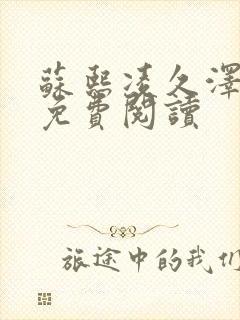 蘇熙凌久澤
免費閱讀
旅途中的我们